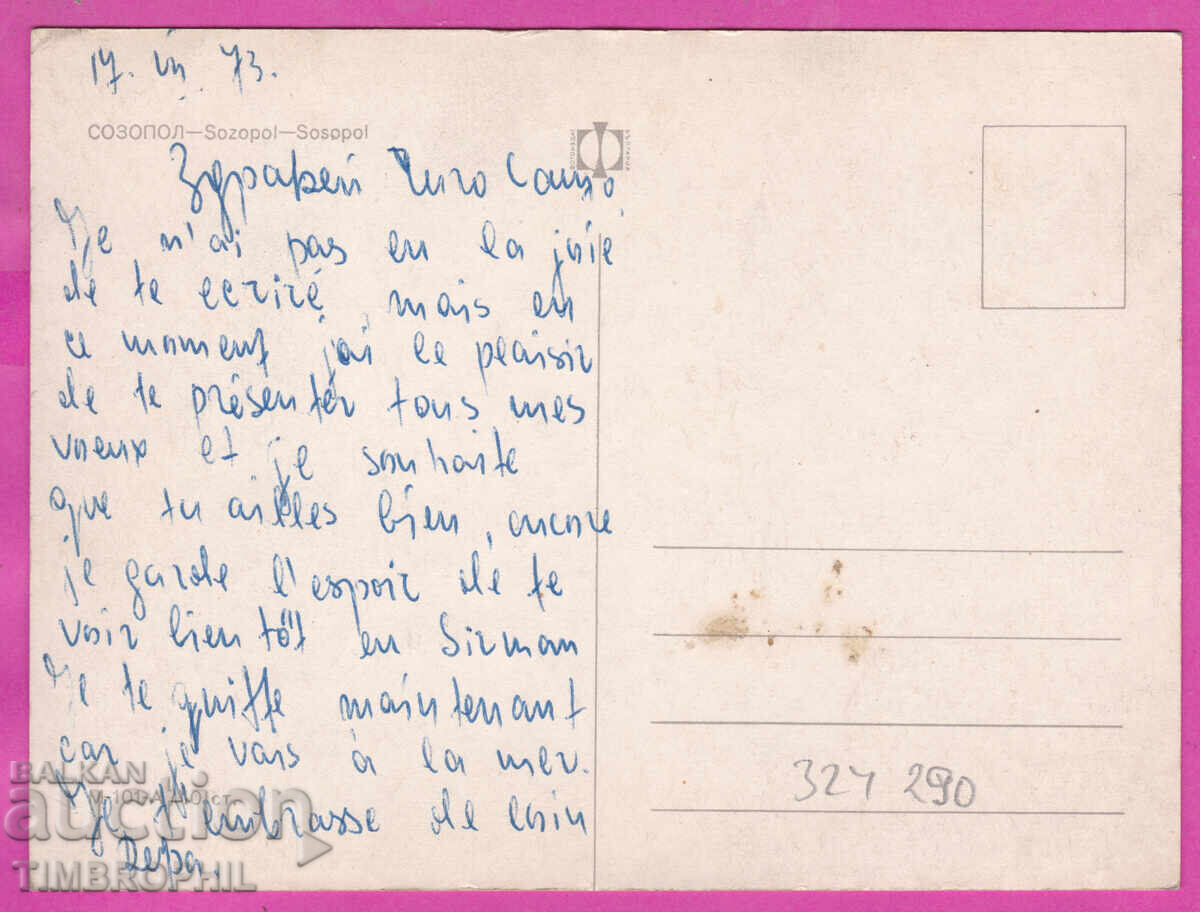 17. VII 73.
СОЗОПОЛ—Sozopol—Sosopol
Здравей Чичо Сашо,
Je n'ai pas eu la joie
de te ecriré, mais en
ce moment j'ai le plaisir
de te présenter tous mes
voeux et je souhaite
que tu ailles bien, encore
je garde l'espoir de te
voir bientôt en Sirman
Je te quitte maintenant
car je vais à la mer.
Je t'embrasse de loin
324 290
BALKAN
auction
TIMBROPHIL